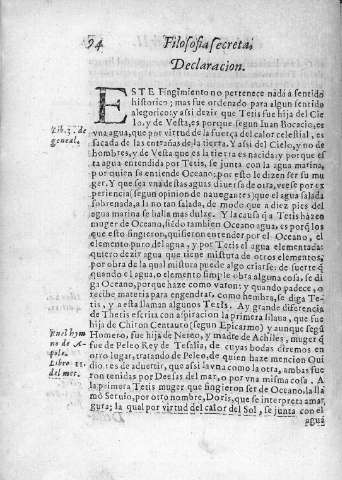 94 Filosofia secreta,
Declaracion.
ESTE Fingimiento no pertenece nada a sentido
historico; mas fue ordenado para algun sentido
alegorico: y assi dezir que Tetis fue hija del Cie
lo, y de Vesta, es porque segun Iuan Bocacio, es
Lib. 3. de
geneal.
vna agua, que por virtud de la fuerça del calor celestial, es
sacada de las entrañas de la tierra. Y assi del Cielo, y no de
hombres, y de Vesta que es la tierra es nacida: y porque es
ta agua entendida por Tetis, se junta con la agua marina,
por quien se entiende Oceano; por esto le dizen ser su mu
ger. Y que sea vna destas aguas diuersa de otra, veese por ex
periencia, segun opinion de nauegantes; que el agua salada
sobrenada, a la no tan salada, de modo que a diez pies del
agua marina se halla mas dulze. Y la causa q̃ a Tetis hazen
muger de Oceano, siẽdo tambien Oceano agua, es porq̃ los
que esto fingieron, quisieron entender por el Oceano, el
elemento puro del agua, y por Tetis el agua elementada:
quiero dezir agua que tiene mistura de otros elementos,
por obra de la qual mistura puede algo criarse: de suerte q̃
quando el agua, o elemento simple obra alguna cosa, se di
ga Oceano, porque haze como varon: y quando padece, o
recibe materia para engendrar, como hembra, se diga Te-
tis, y a esta llaman algunos Tetis. Ay grande diferencia
de Thetis escrita con aspiracion la primera silaua, que fue
hija de Chiron Centauro (segun Epicarmo) y aunque segũ
En el hym
no de A-
polo.
Homero, fue hija de Nereo, y madre de Achiles, muger q̃
fue de Peleo Rey de Tesalia, de cuyas bodas diremos en
otro lugar, tratando de Peleo, de quien haze mencion Oui
Libro 11.
del met.
dio: es de aduertir, que assi la vna como la otra, ambas fue
ron tenidas por Deesas del mar, o por vna misma cosa. A
la primera Tetis muger que fingieron ser de Oceano, la lla
mó Seruio, por otro nombre, Doris, que se interpreta amar
gura; la qual por virtud del calor del Sol, se junta con el
agua